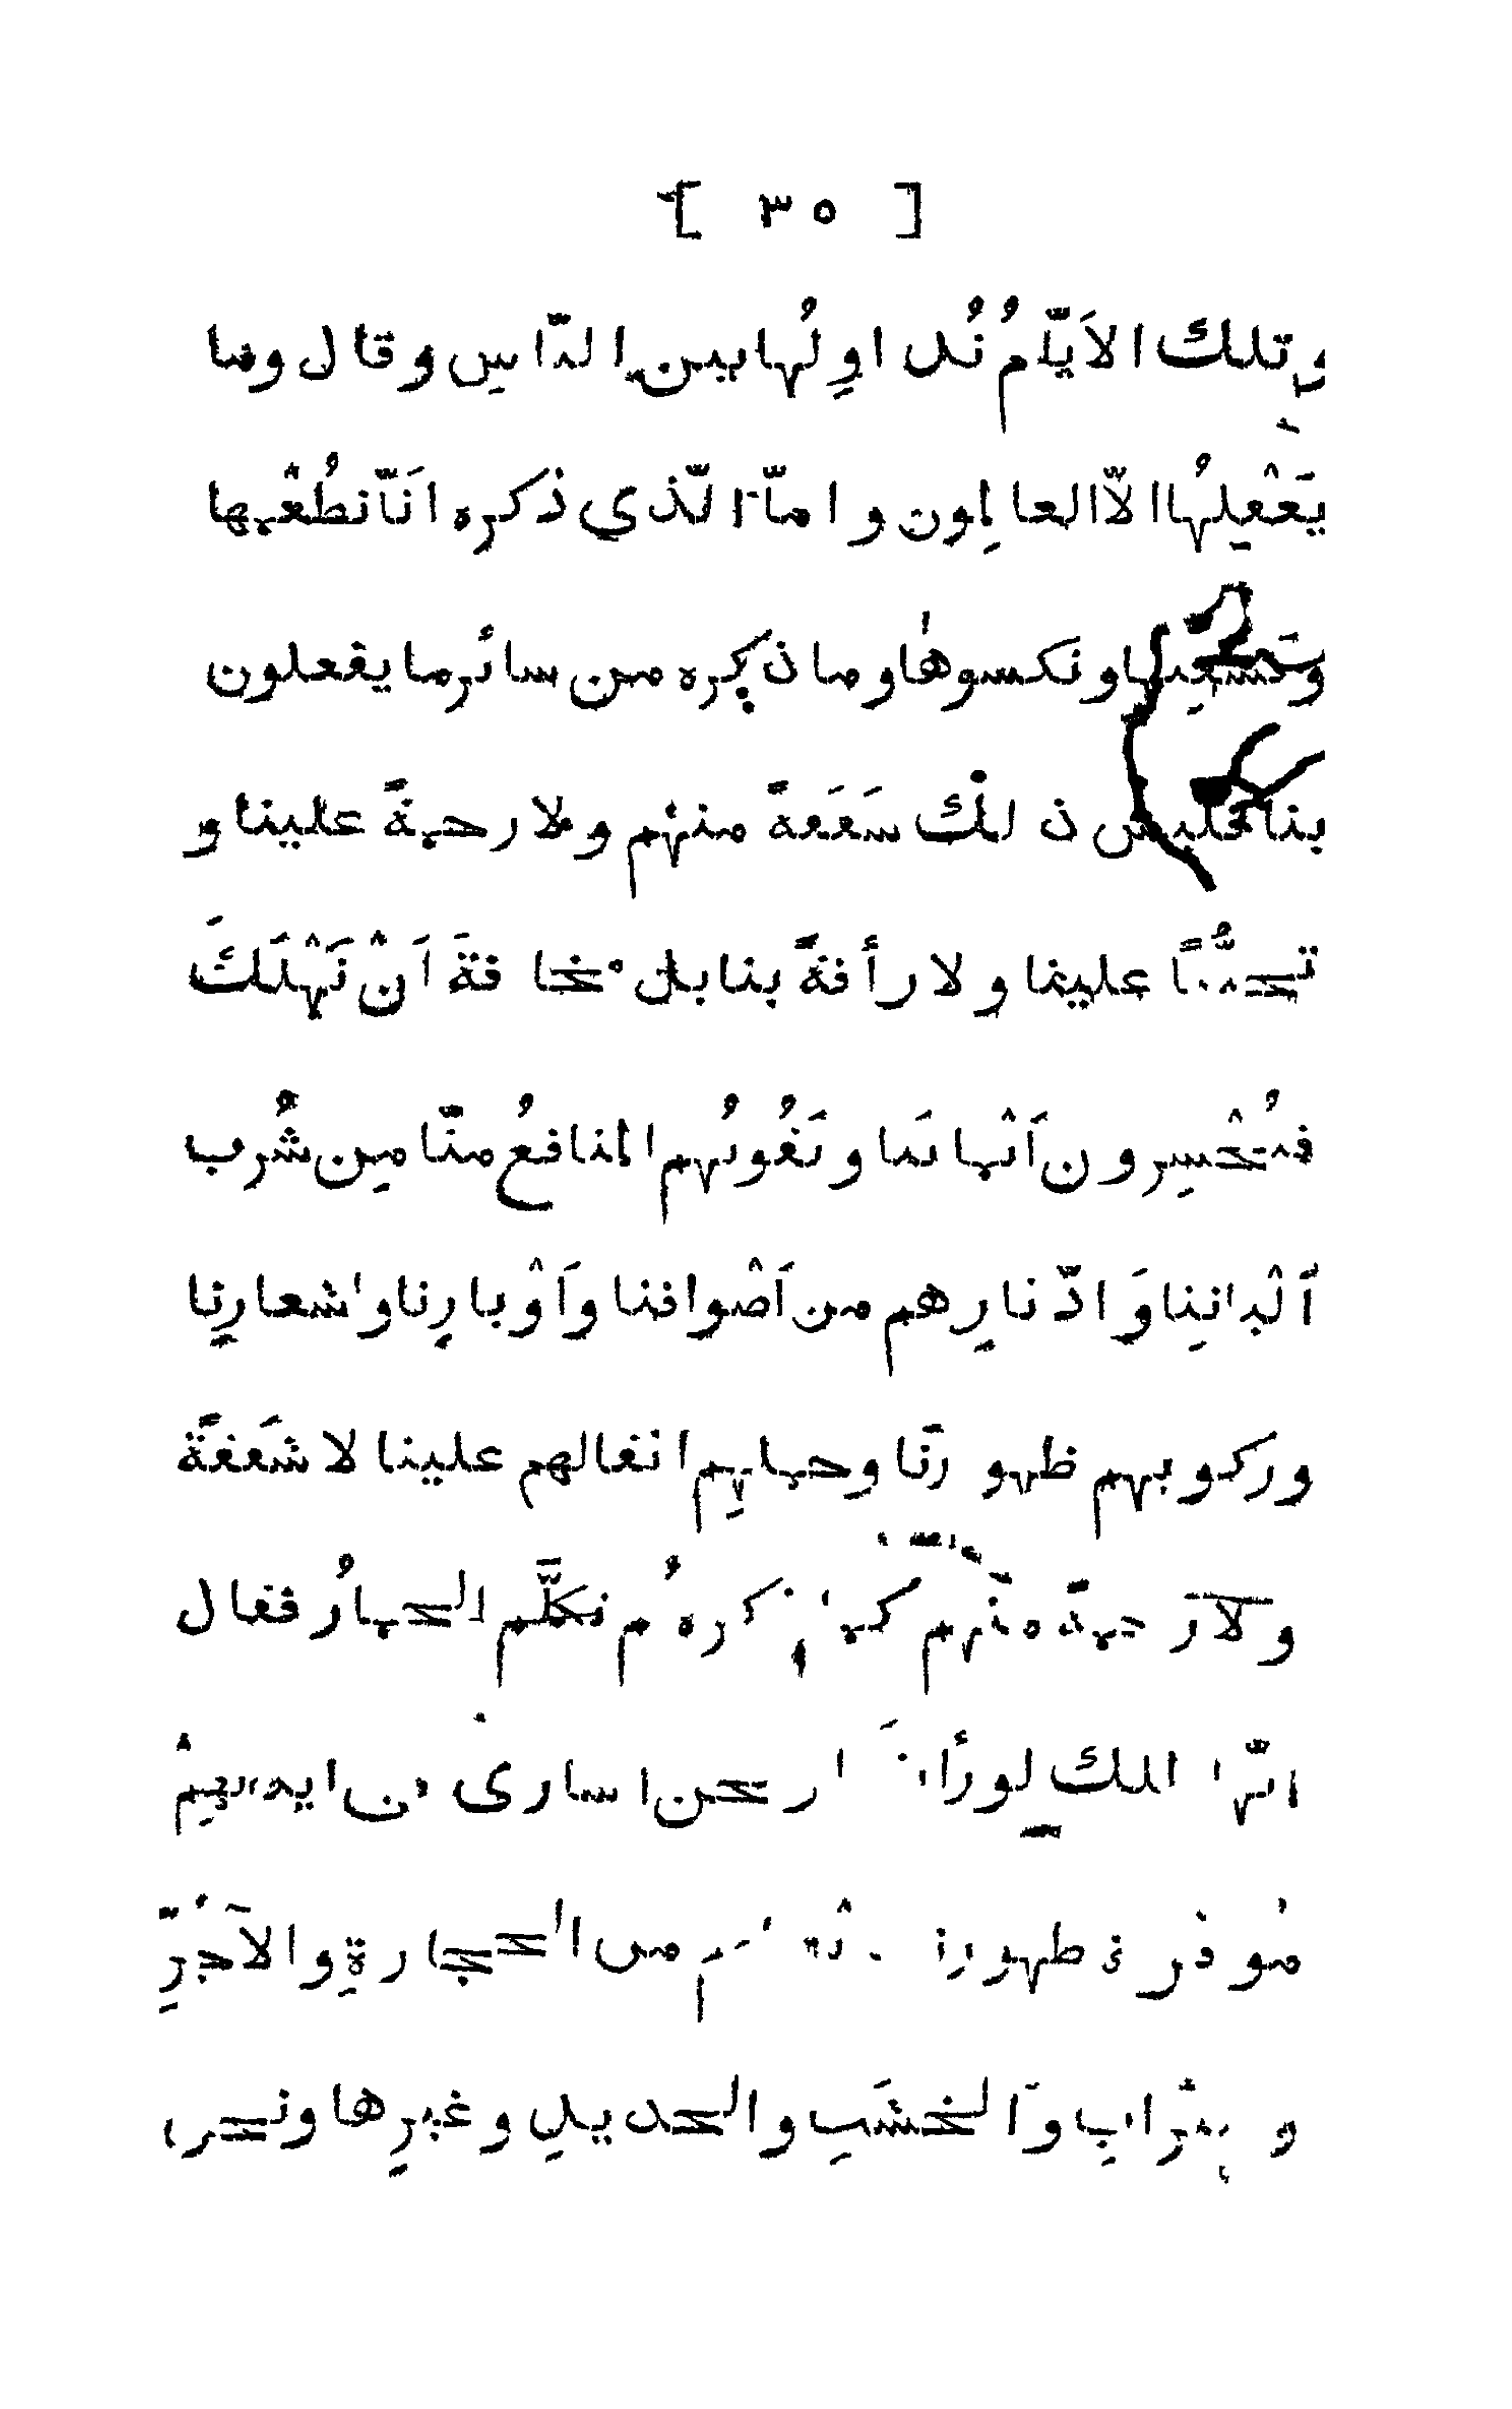 [ ٣٥ ]
وتلك الاَيّامُ نُداوِلُها بين النّاسِ وقال وما
يَعْقِلُها الاّ العالِمون و امّا الّذي ذكره انَّا نطُعْمها
ونكسوهٰا وما ذكِره من سائر ما يفعلون
بنا فليس ذ لك شَفَقةً منهْم ولا رحمةً علينا و
تحنُّناً علينا ولا رأفةً بنا بل مخافةَ اَنْ نَهْلَكَ
فيُخْسِرون اَثْمانَنا وتَفُوتُهم المنافعُ منّا مِن شُرب
اَلْبانِنا وَادّثارِهم من اَصْوافنا واَوْبارِنا واشعارِنا
وركوبهم ظهورَنا وحملِهِم اثقالهم علينا لا شَفَقَةً
ولا رحمةً منهم كما ذكرهُ ثم تكلَّم الحمارُ فقال
ايّها الملك لورأيتنا نحن اسارى في ايديهِمْ
مُوقرةً ظهورنا من الحجارةِ والآجُرِّ
و التّرابِ وَالخشَبِ والحديدِ وغيرِها ونحن